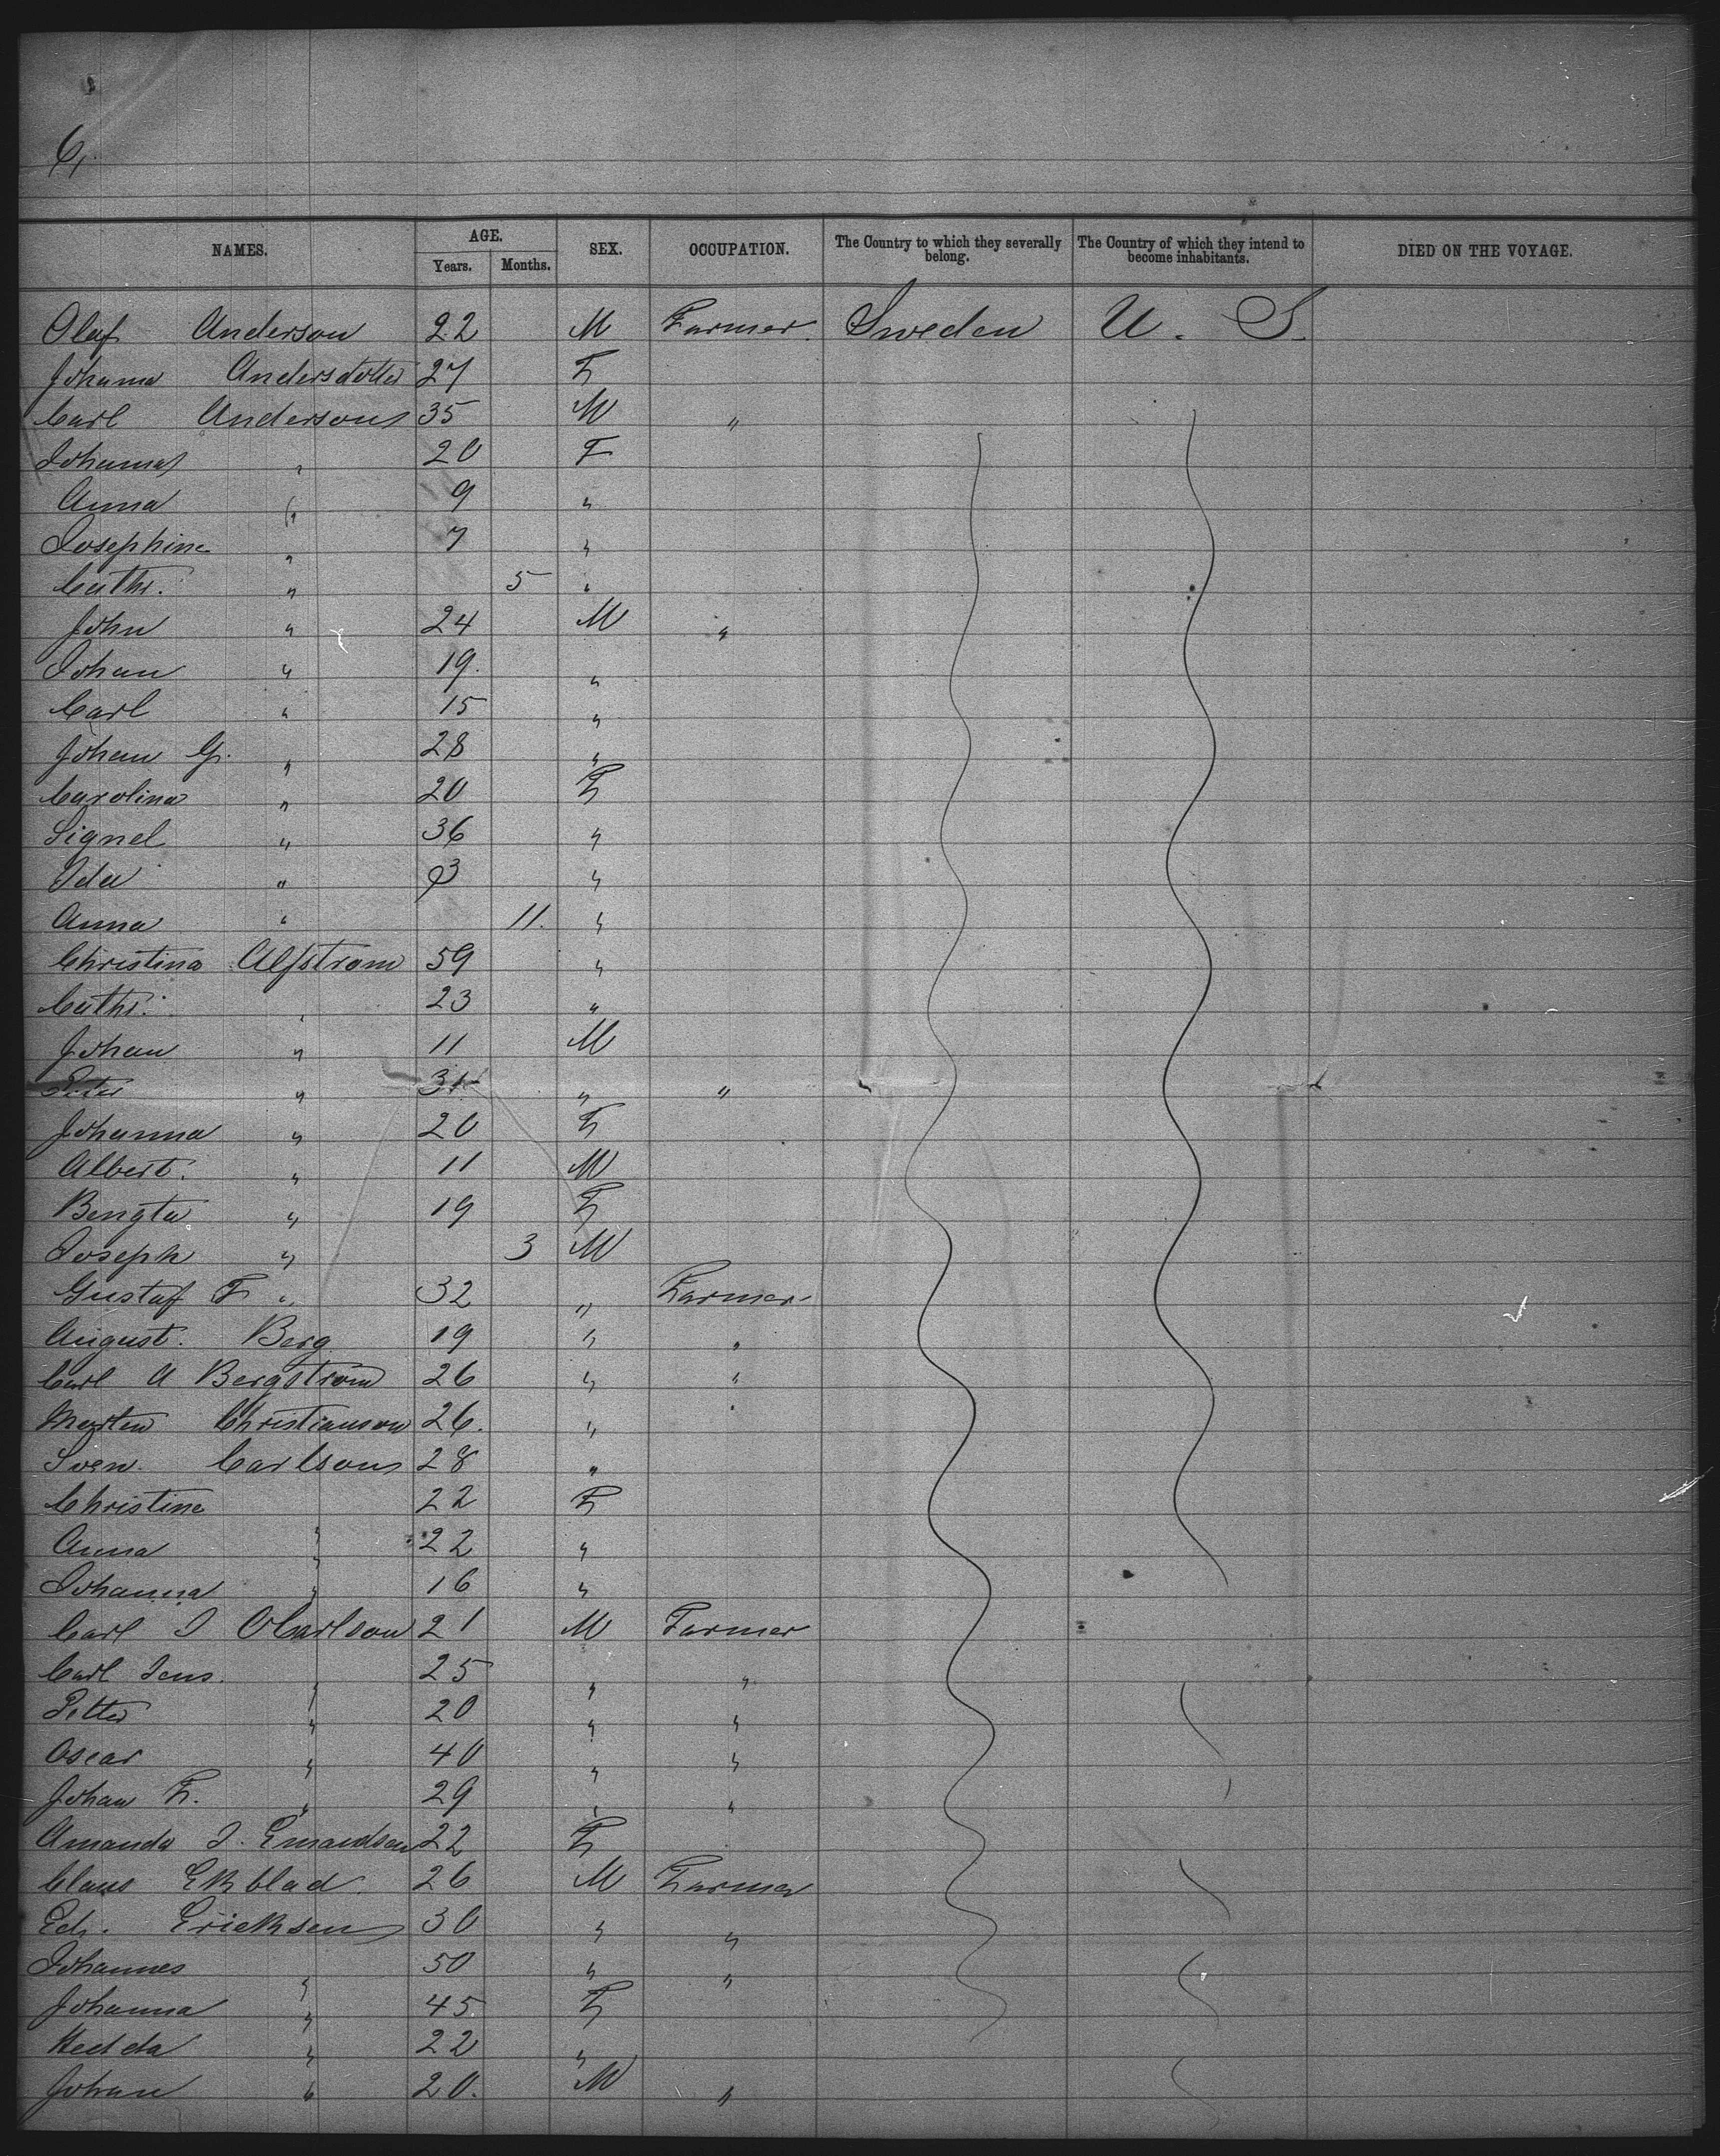 6,
NAMES. AGE. SEX. OCCUPATION. The Country to which they severally belong. The Country of which they intend to become inhabitants. DIED ON THE VOYAGE.
Years. Months.
Olaf Anderson 22 M Farmer Sweden U. S.
Johanna Andersdotter 27 F
Carl Anderson 35 M "
Johanna " 20 F
Anna " 9 "
Josephine " 7 "
Cathr. " 5 "
John " 24 M "
Johan " 19. "
Carl " 15 "
Johan G. " 28 "
Carolina " 20 F
Signel " 36 "
Ida " 3 "
Anna " 11. "
Christina Alfstrom 59 "
Cathr. " 23 "
Johan " 11 M
Peter " 31 " "
Johanna " 20 F
Albert. " 11 M
Bengta " 19 F
Joseph " 3 M
Gustaf F " 32 " Farmer
August. Berg 19 " "
Carl A Bergstrom 26 " "
Morten Christianson 26. " "
Sven. Carlson 28 "
Christine " 22 F
Anna " 22 "
Johanna " 16 "
Carl J Carlson 21 M Farmer
Carl Jens. " 25 " "
Petter " 20 " "
Oscar " 40 " "
Johan F. " 29 " "
Amanda J. 22 F
Claus Ekblad 26 M Farmer
Ed. Ericksen 30 " "
Johannes " 50 " "
Johanna " 45 F
Hedda " 22 "
Johan " 20. M "